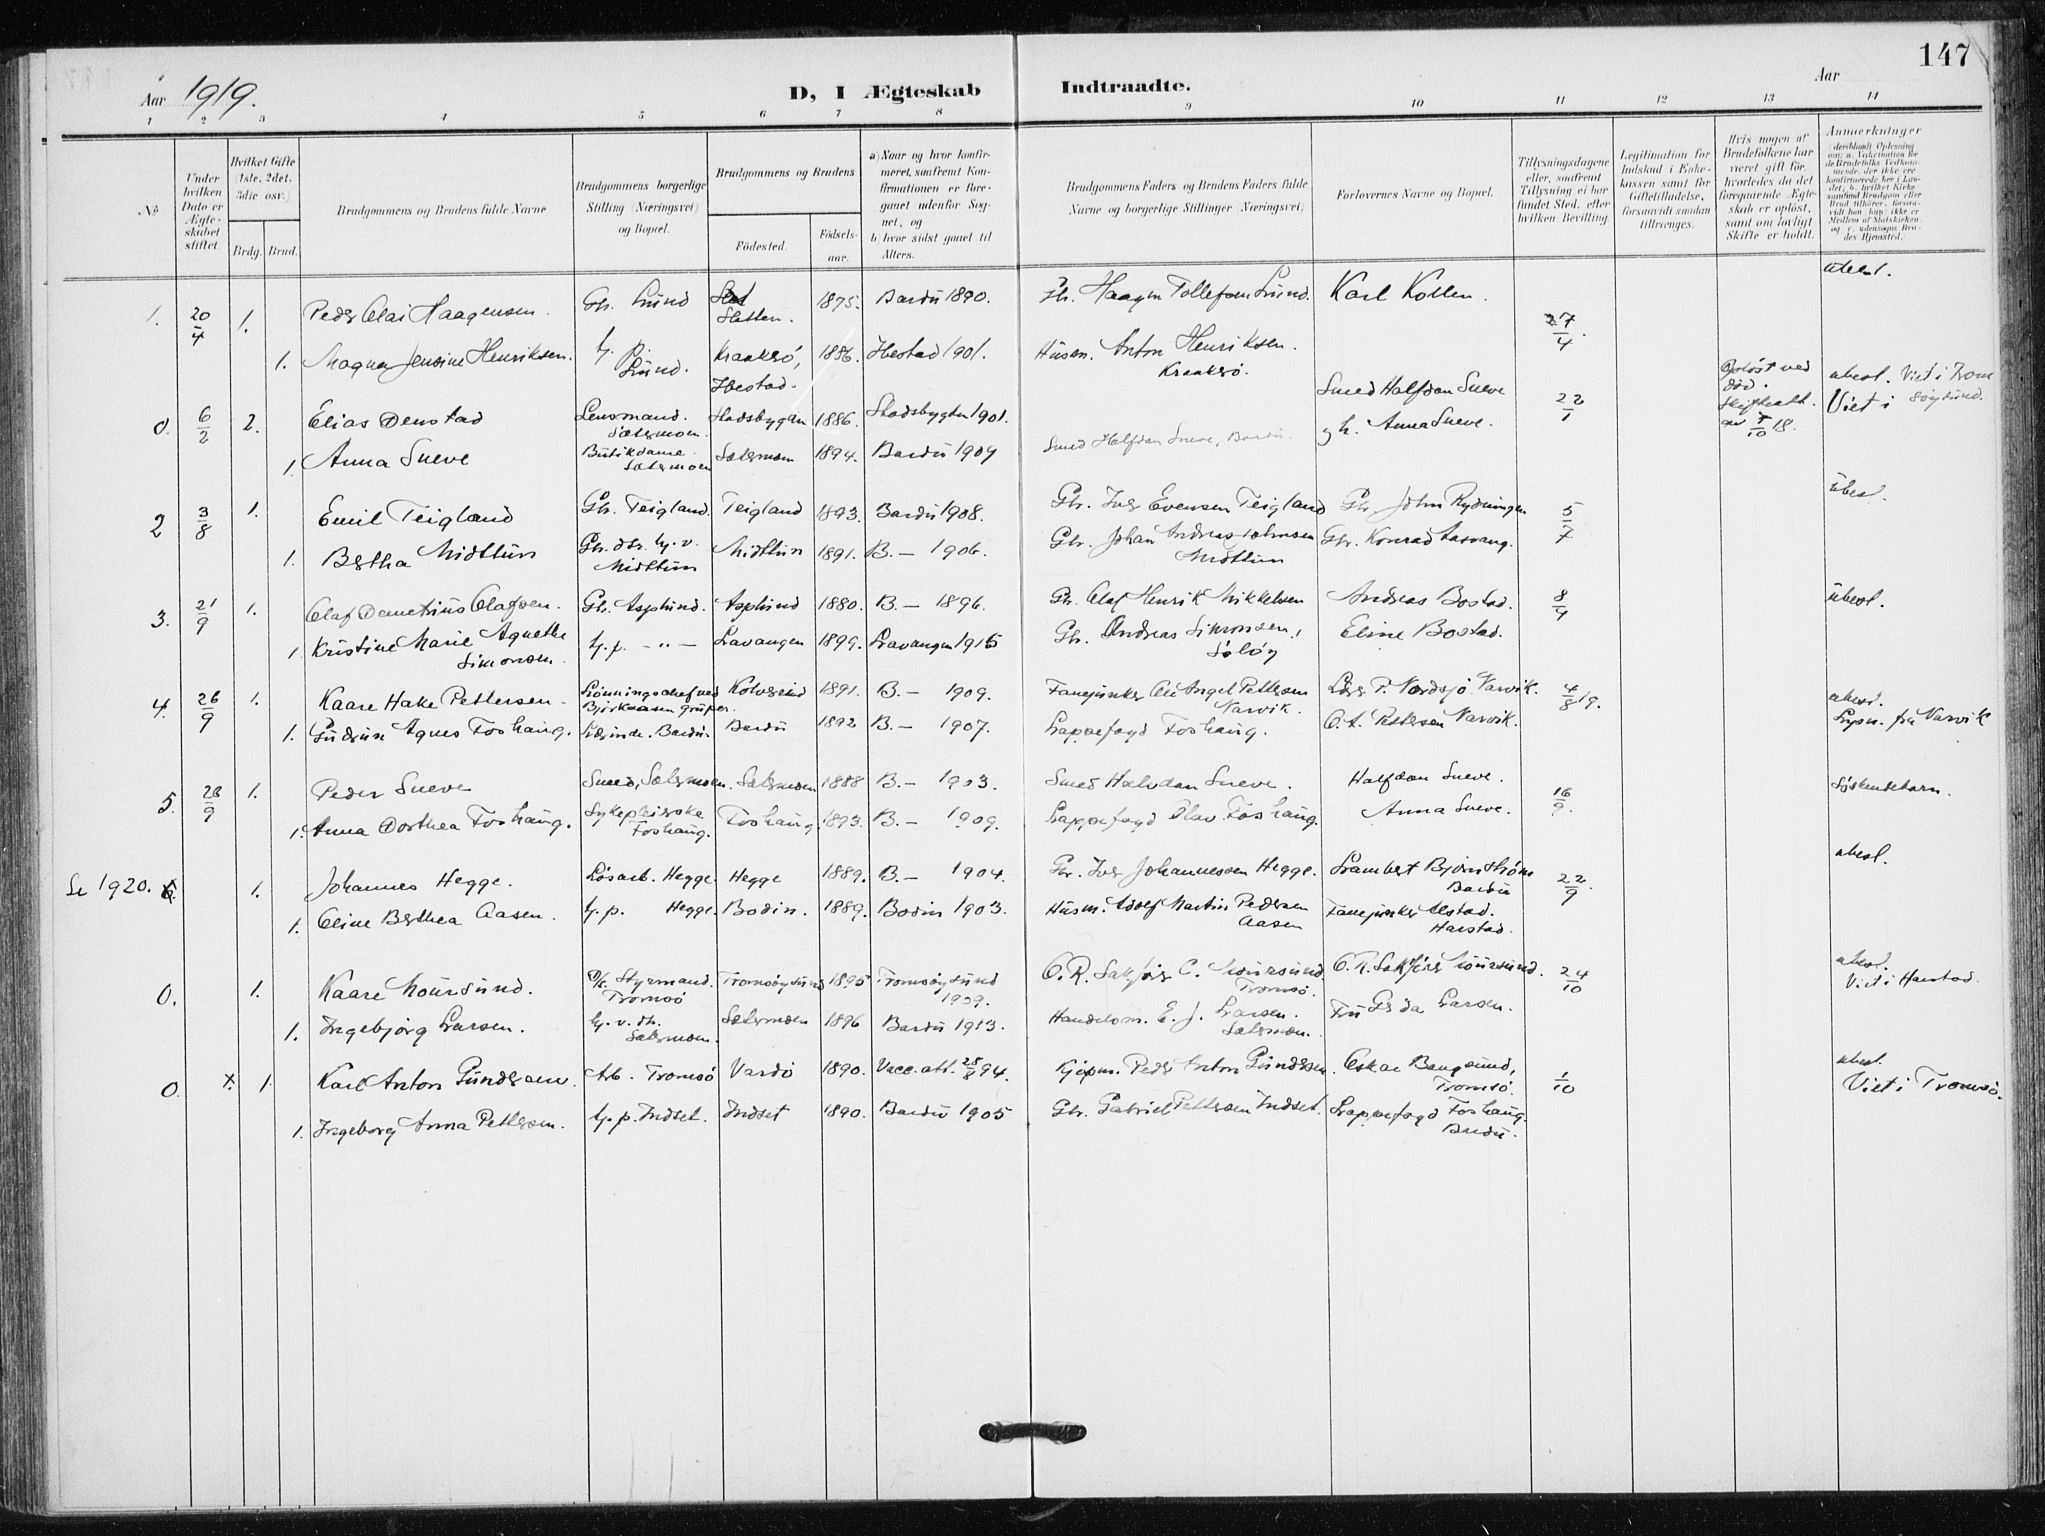 147
Aar 1919.
D, I Ægteskab Indtraadte.
Aar
1 2 3 4 5 6 7 8 9 10 11 12 13 14
No
Under hvilken Dato er Ægteskabet stiftet.
Hvilket Gifte (1ste, 2det, 3die osv.)
Brdg. Brud.
Brudgommens og Brudens fulde Navne
Brudgommens borgerlige Stilling (Næringsvei) og Bopæl.
Brudgommens og Brudens
Fødested.
Fødselsaar.
a) Naar og hvor konfirmeret, samfremt Konfirmationen er foregaaet udenfor Sognet, og
b) hvor sidst gaaet til Alters.
Brudgommens Faders og Brudens Faders fulde Navne og borgerlige Stillinger (Næringsvei)
Forlovernes Navne og Bopæl.
Tillysningsdagene eller, saafremt Tillysning ei har fundet Sted, efter hvilken Bevilling.
Legitimation for Indskud i Enkekassen samt for Giftetilladelse, forsaavidt saadan tiltrænges.
Hvis nogen af Brudefolkene har været gift før, hvorledes da det foregaaende Ægteskab er opløst, samt om lovligt Skifte er holdt.
Anmerkninger
1. 20/4 1. Peder Olai Haagensen. Gbr. Lund Sletten. 1875. Bardu 1890. Gbr. Haagen Tollefsen Lund. Karl Kollen. 27/4. ubesl.
1. Magna Jensine Henriksen. tj. p. Lund. Kraaksø, Ibestad. 1886. Ibestad 1901. Husm. Anton Henriksen. Kraaksø.
0. 6/2 2. Elias Denstad Lensmand. Sætermoen. Stadsbygden 1886. Stadsbygden 1901. Smed Halfdan Sneve 22/1 Opløst ved død. Skifteatt. av 7/10 18. ubesl. Viet i Tromsøysund.
1. Anna Sneve Butikdame. Sætermoen Sætermoen 1894. Bardu 1909 Smed Halfdan Sneve, Bardu. Anna Sneve.
2 3/8 1. Emil Teigland Gbr. Teigland. Teigland 1893. Bardu 1908. Gbr. Iver Evensen Teigland Gbr. John Rydningen 5/7 ubesl.
1. Bertha Midttun Gbr. dtr. tj. v. Midttun Midttun 1891. B. — 1906. Gbr. Johan Andreas Johnsen Midttun Gbr. Konrad Aasvang.
3. 21/9 1. Olaf Demetrius Olafsen. Gbr. Asplund. Asplund 1880. B. — 1896. Gbr. Olaf Henrik Mikkelsen Andreas Bostad. 8/4 ubesl.
1. Kristine Marie Agnethe Simonsen. tj. p. — " — Lavangen 1899. Lavangen 1915 Gbr. Andreas Simonsen, Soløy Eline Bostad.
4. 26/9 1. Kaare Hake Pettersen. Lønningschef ved Bjørkaasen Gruper. Kolvereid 1891. B. — 1909. Fanejunker Ole Angel Pettersen Narvik. Lærer P. Nordsjø Narvik. 4/8 19. ubesl. Lysn. fra Narvik
1. Gudrun Agnes Foshaug. Lærerinde. Bardu. Bardu 1892 B. — 1907. Lappefogd Foshaug. O. A. Pettersen Narvik.
5. 28/9 1. Peder Sneve Smed, Sætermoen. Sætermoen 1888 B. — 1903. Smed Halvdan Sneve. Halfdan Sneve. 16/9. Søskendebarn.
1. Anna Dorthea Foshaug. Sykepleierske Foshaug. Foshaug. 1893. B. — 1909. Lappefogd Olav Foshaug. Anna Sneve.
Se 1920. 6. 1. Johannes Hegge. Løsarb. Hegge. Hegge 1889. B. — 1904. Gbr. Iver Johannessen Hegge. Lambert Bjørnstrøm Bardu 22/9. ubesl.
1. Eline Berthea Aasen. tj. p. Hegge. Bodin. 1889. Bodin 1903. Husm. Adolf Martin Pedersen Aasen Fanejunker Alstad. Harstad.
0. 1. Kaare Moursund. Styrmand. Tromsø Tromsøysund 1895 Tromsøysund 1909. O. R. Sakfører C. Moursund Tromsø. O. R. Sakfører Moursund. 24/10 ubesl. Viet i Harstad.
1. Ingebjørg Larsen. tj. v. Sætermoen. Sætermoen 1896 Bardu 1913. Handelsm. E. J. Larsen. Sætermoen. Fru Gerda Larsen.
0. x. 1. Karl Anton Gundersen. Arb. Tromsø Vardø 1890. Vacc. att. 25/8 94. Kjøpm. Peder Anton Gundersen. Oskar Bangsund, Tromsø. 1/10 ubesl. Viet i Tromsø.
1. Ingeborg Anna Pettersen. tj. p. Indset. Indset 1890. Bardu 1905 Gbr. Gabriel Pettersen Indset. Lappefogd Foshaug. Bardu.